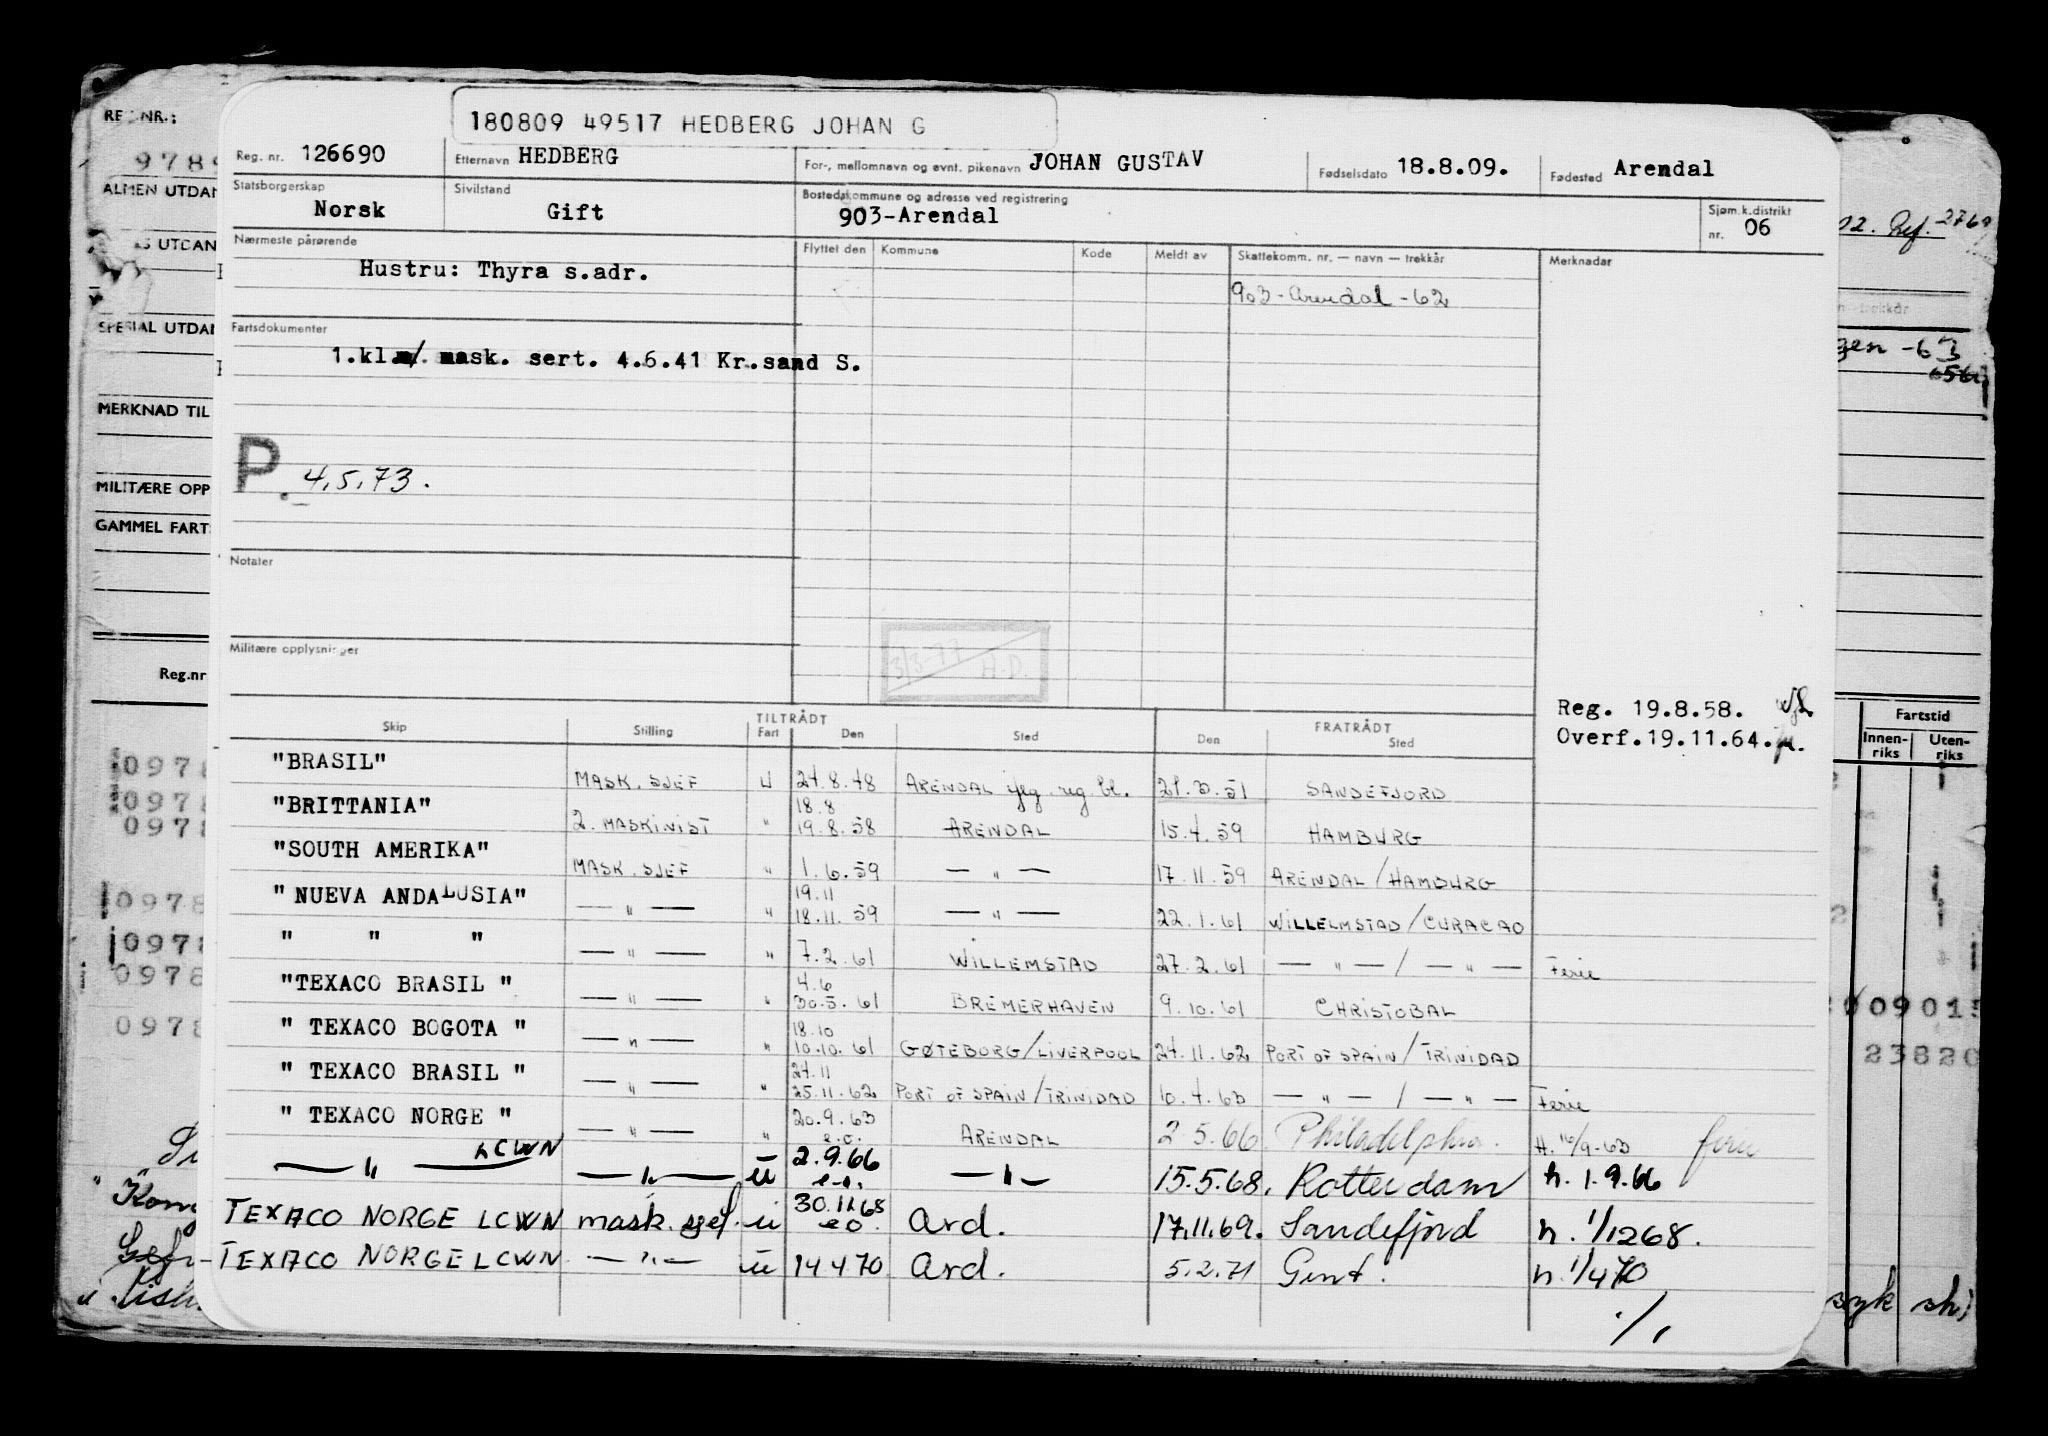 180809 49517 HEDBERG JOHAN G
Reg. nr. 126690 Etternavn HEDBERG For-, mellomnavn og evnt. pikenavn JOHAN GUSTAV Fødselsdato 18.8.09. Fødested Arendal
Statsborgerskap Norsk Sivilstand Gift Bostedskommune og adresse ved registrering 903-Arendal Sjøm.k.distrikt nr. 06
Nærmeste pårørende Flyttet den Kommune Kode Meldt av Skattekomm. nr. — navn — trekkår Merknader
Hustru: Thyra s.adr.
903-Arendal-62
Fartsdokumenter
1.kl.m/ mask. sert. 4.6.41 Kr.sand S.
P. 4.5.73.
Notater
3/3-77 A.D.
Militære opplysninger
Reg. 19.8.58.
Overf.19.11.64.
Skip Stilling TILTRÅDT Fart Den Sted FRATRÅDT Den Sted
"BRASIL" MASK. SJEF U 24.8.48 ARENDAL reg. bl. 21.3.51 SANDEFJORD
"BRITTANIA" 2. MASKINIST " 18.8 19.8.58 ARENDAL 15.4.59 HAMBURG
"SOUTH AMERIKA" MASK. SJEF " 1.6.59 — " — 17.11.59 ARENDAL/HAMBURG
"NUEVA ANDALUSIA" — " — " 19.11 18.11.59 — " — 22.1.61 WILLELMSTAD/CURACAO
" " " — " — " 7.2.61 WILLEMSTAD 27.2.61 — " — / — " — Ferie
"TEXACO BRASIL " — " — " 4.6 30.5.61 BREMERHAVEN 9.10.61 CHRISTOBAL
" TEXACO BOGOTA " — " — " 18.10 10.10.61 GØTEBORG/LIVERPOOL 24.11.62 PORT OF SPAIN/TRINIDAD
" TEXACO BRASIL " — " — " 24.11 25.11.62 PORT OF SPAIN/TRINIDAD 10.4.63 — " — / — " — Ferie
" TEXACO NORGE " — " — " 20.9.63 e.o. ARENDAL 2.5.66 Philadelphia. H. 16/9-63 ferie
— " — LCWN — " — u 2.9.66 e.o. — " — 15.5.68. Rotterdam h. 1.9.66
TEXACO NORGE LCWN mask. sjef. u 30.11.68 e o. Ard. 17.11.69. Sandefjord h. 1/1268.
TEXACO NORGE LCWN — " — u 14 4 70 Ard. 5.2.71 Gent. h. 1/470
./.
REG.NR.:
9789
ALMEN UTDAN
SPESIAL UTDAN
MERKNAD TIL
MILITÆRE OPP
GAMMEL FART
Reg.nr
0978
0978
0978
0978
0978
0978
0978
02. Ref. 2769
gen -63
Fartstid
Innenriks Utenriks
09015
23820
syk